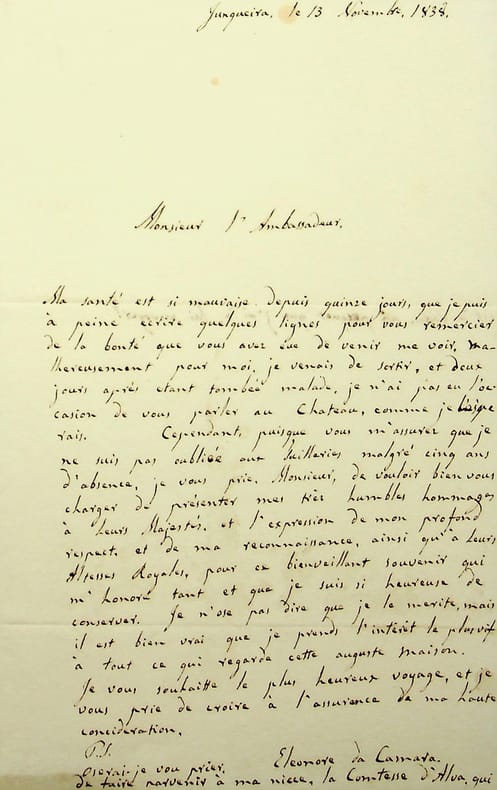 Junqueira, le 13 Novembre, 1838.
Monsieur l'Ambassadeur.
Ma santé est si mauvaise depuis quinze jours, que je puis
à peine écrire quelques lignes pour vous remercier
de la bonté que vous avez eue de venir me voir, ma-
lheureusement pour moi, je venais de sortir, et deux
jours aprés etant tombée malade, je n'ai pas eu l'oc-
casion de vous parler au Chateau, comme je
rais. Cependant, puisque vous m'assurez que je
ne suis pas oubliée aux Tuilleries malgré cinq ans
d'absence, je vous prie, Monsieur, de vouloir bien vous
charger de présenter mes très humbles hommages
à Leurs Majestés, et l'expression de mon profond
respect, et de ma reconnaissance, ainsi qu'à Leurs
Altesses Royales, pour ce bienveillant souvenir qui
m'honore tant et que je suis si heureuse de
conserver. Je n'ose pas dire que je le merite, mais
il est bien vrai que je prends l'intérêt le plus vif
à tout ce qui regarde cette auguste maison.
Je vous souhaitte le plus heureux voyage, et je
vous prie de croire à l'assurence de ma haute
concideration.
P.S. Eleonore da Camara.
oserai-je vou prier,
de faire parvenir à ma niece, la Comtesse d'Alva, qui